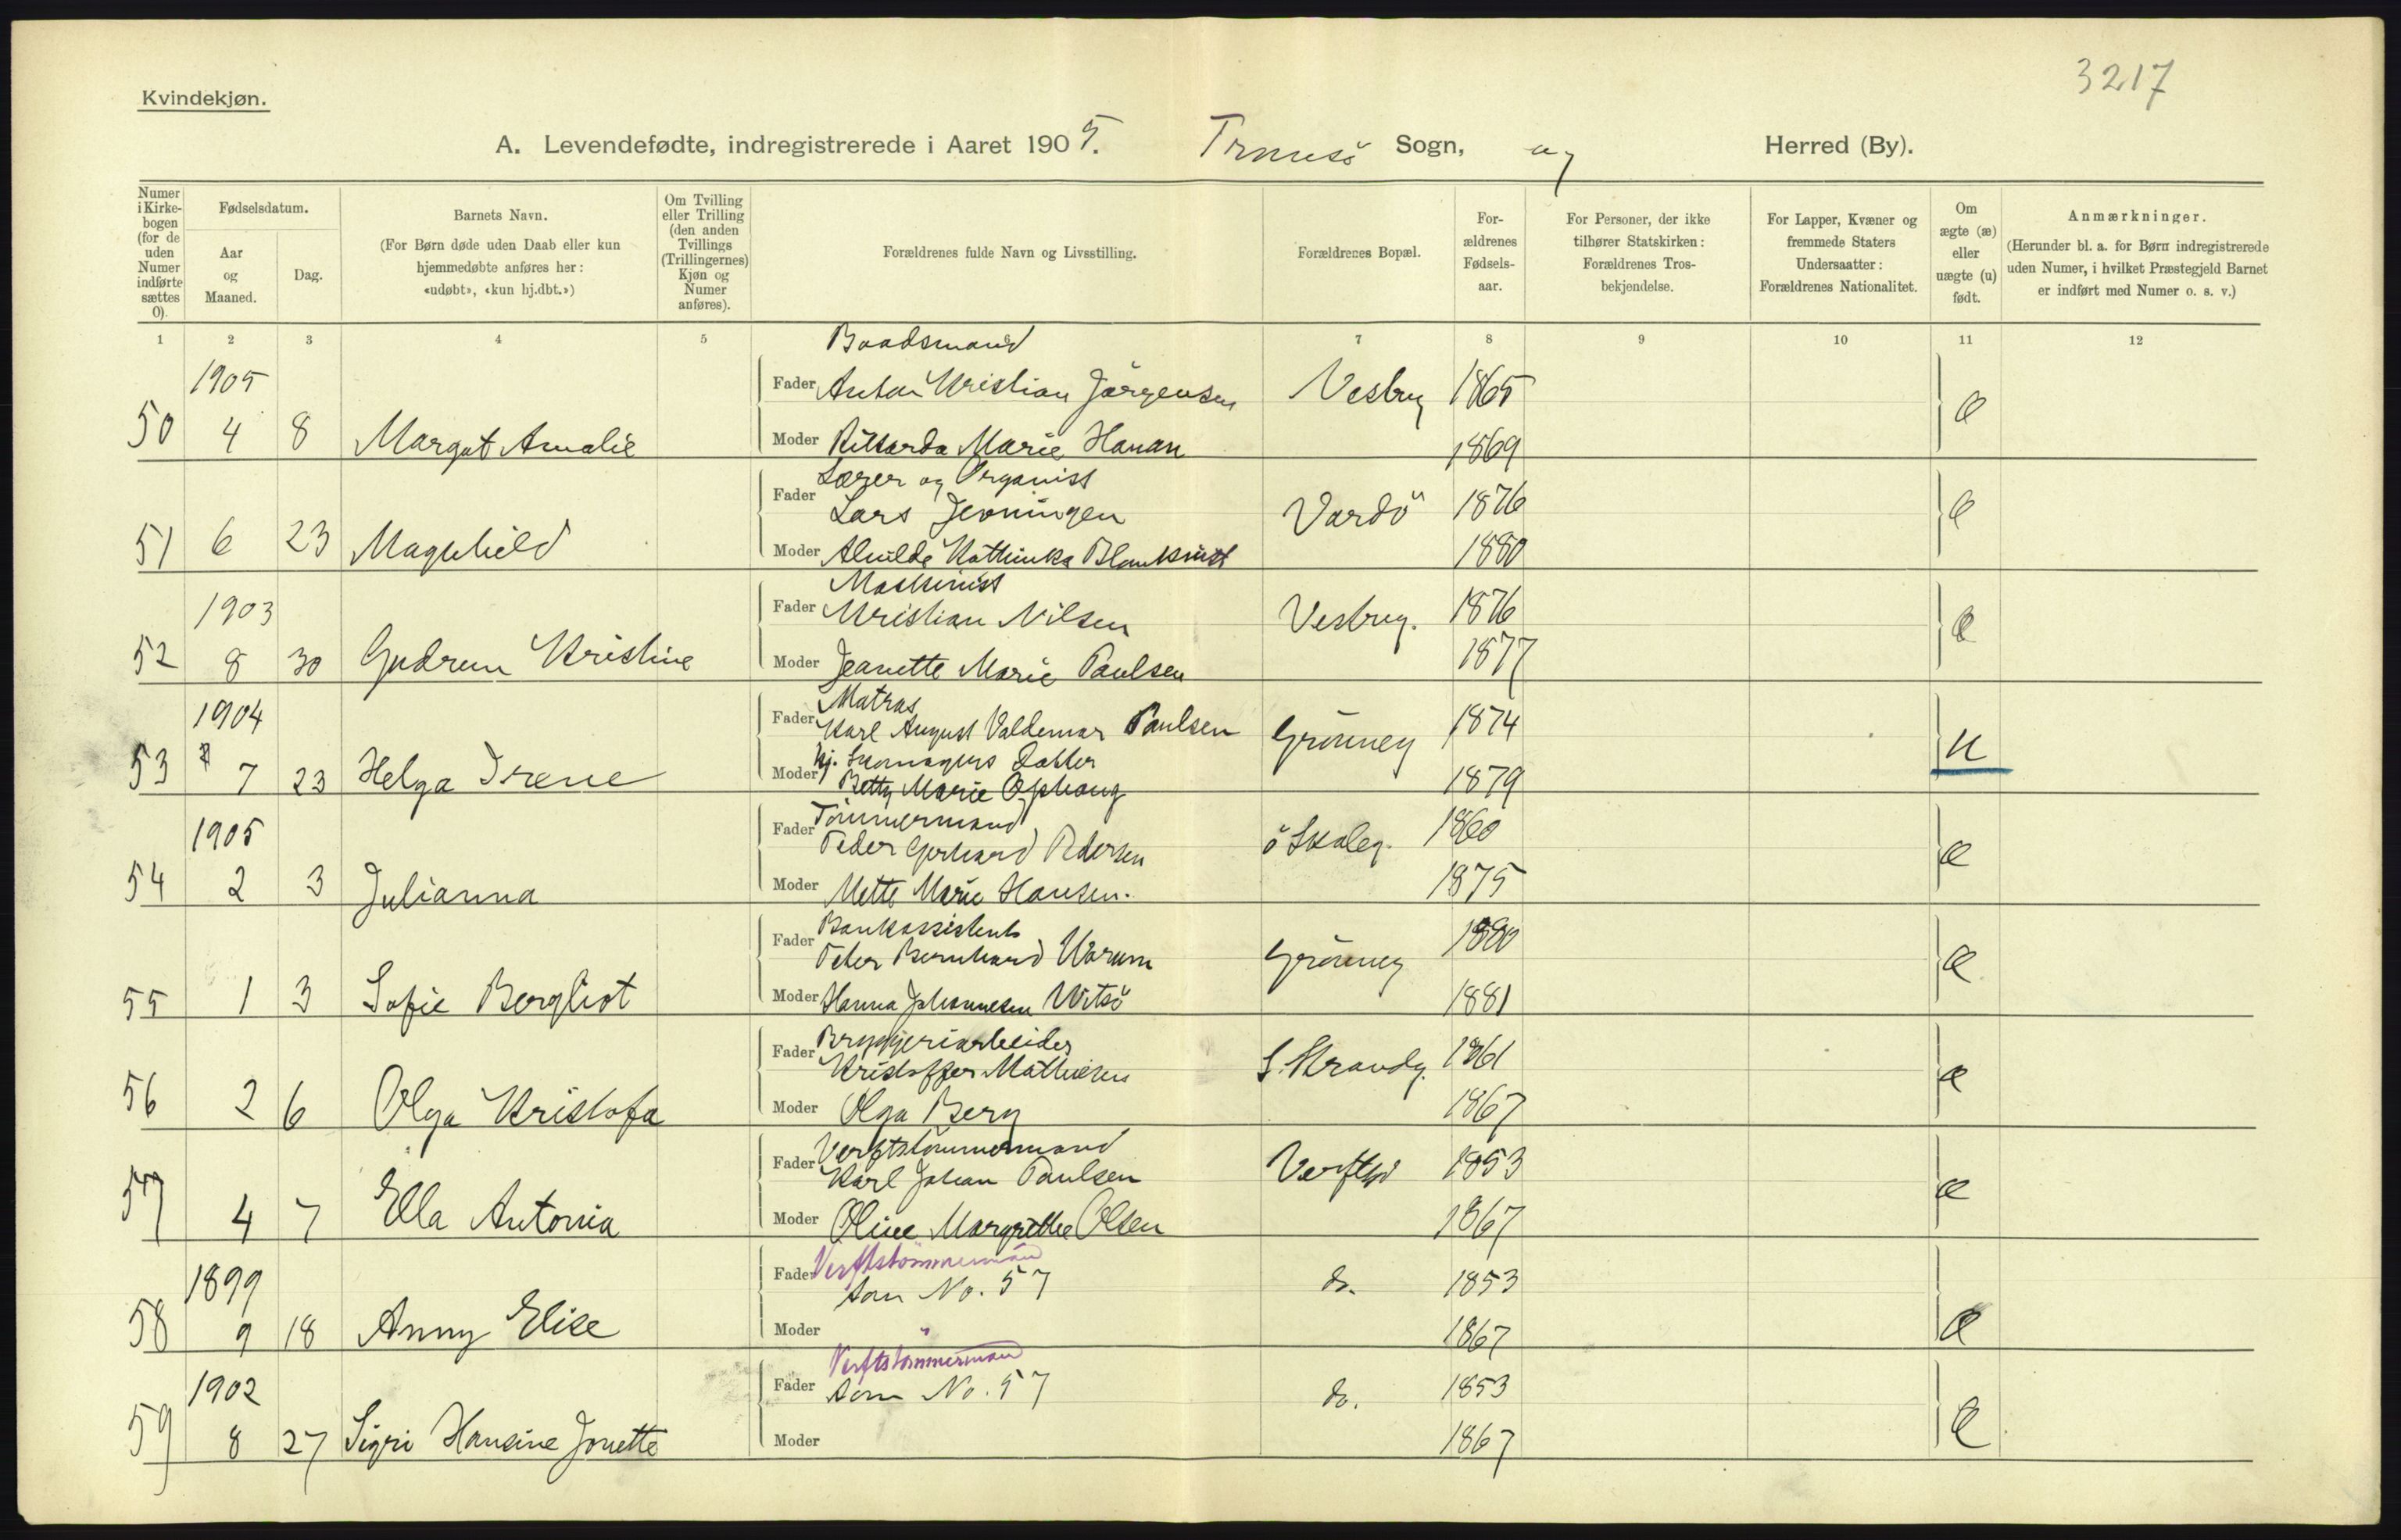 3217
Kvindekjøn.
A. Levendefødte, indregistrerede i Aaret 1905. Tromsö Sogn, og Herred (By).
Numer i Kirke-bogen (for de uden Numer indførte sættes 0).
Fødselsdatum.
Aar og Maaned.
Dag.
Barnets Navn.
(For Børn døde uden Daab eller kun hjemmedøbte anføres her: «udøbt», «kun hj.dbt.»)
Om Tvilling eller Trilling (den anden Tvillings (Trillingernes) Kjøn og Numer anføres).
Forældrenes fulde Navn og Livsstilling.
Forældrenes Bopæl.
For-ældrenes Fødsels-aar.
For Personer, der ikke tilhører Statskirken: Forældrenes Tros-bekjendelse.
For Lapper, Kvæner og fremmede Staters Undersaatter: Forældrenes Nationalitet.
Om ægte (æ) eller uægte (u) født.
Anmærkninger.
(Herunder bl. a. for Børn indregistrerede uden Numer, i hvilket Præstegjeld Barnet er indført med Numer o. s. v.)
1 2 3 4 5 7 8 9 10 11 12
Baadsmand
1905 Fader Anton Kristian Jörgensen Vestreg 1865
50 4 8 Margot Amalie Moder Rikarda Marie Hanan 1869 æ
Lærer og Organist
Fader Lars Jenningen Vardö 1876
51 6 23 Magnhild Moder Alvilde Kathinka 1880 æ
Maskinist
1903 Fader Kristian Nilsen Vestreg. 1876
52 8 30 Gudrun Kristine Moder Jeanette Marie Paulsen 1877 æ
Matros
1904 Fader Karl August Valdemar Paulsen Grönneg 1874
Skomagers Datter
53 7 23 Helga Irene Moder Betty Marie Ophaug 1879 u
Tömmermand
1905 Fader Peder Gerhard Pedersen ö Skoleg. 1860
54 2 3 Julianna Moder Mette Marie Hansen. 1875 æ
Bankassistent
Fader Peter Bernhard Kårum Grönneg 1880
55 1 3 Sofie Bergliot Moder Hanna Johannesen Vitsö 1881 æ
Bryggeriarbeider
Fader Kristoffer Mathiesen S. Strandg. 1861
56 2 6 Olga Kristofa Moder Olga Berg 1867 æ
Verftstömmermand
Fader Karl Johan Paulsen Verftsg 1853
57 4 7 Ella Antonia Moder Oline Margrethe Olsen 1867 æ
Verftstömmermand
1899 Fader som No. 57 do. 1853
58 9 18 Anny Elise Moder " 1867 æ
Verftstömmermand
1902 Fader som No. 57 do. 1853
59 8 27 Sigri Hansine Jonette Moder 1867 æ